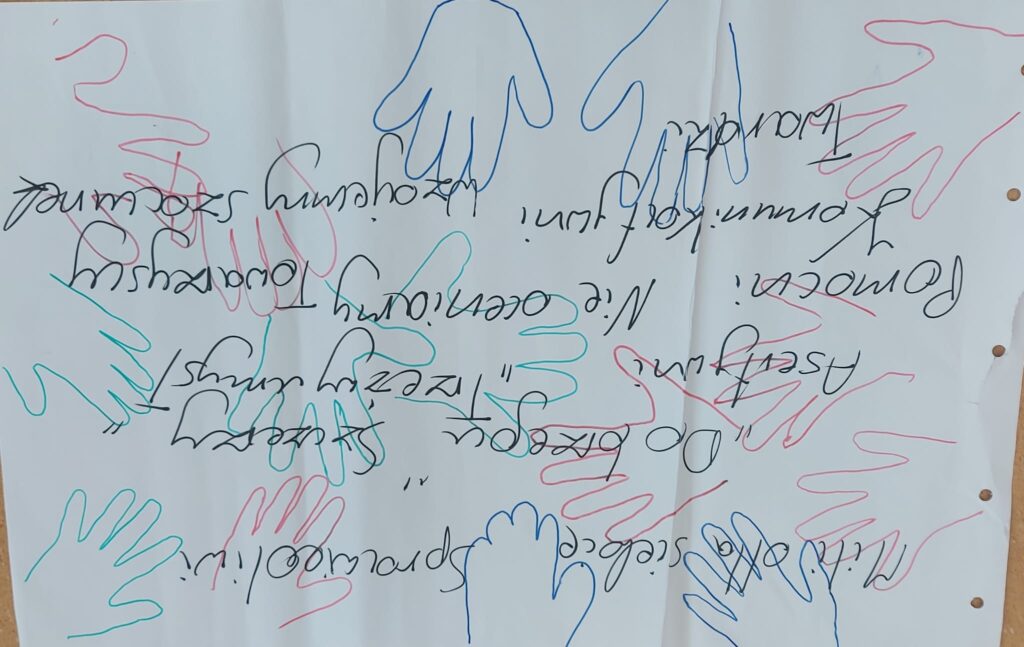 Mili dla siebie Sprawiedliwi
"Do brzegu" Szczerzy
Asertywni "Trzeźwy umysł"
Pomocni Nie oceniamy Towarzyscy
Komunikatywni Wzajemny szacunek
Twardzi